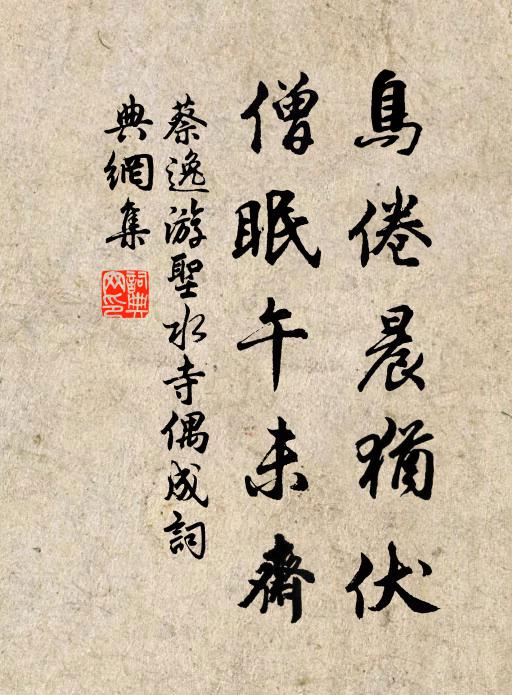 鳥倦晨猶伏
僧眠午未齋
蔡逸游聖水寺偶成詞
典網集
詞典網印